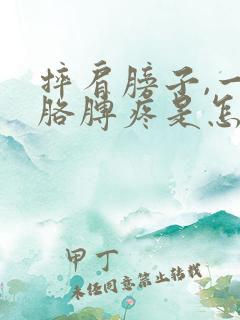 摔肩膀子,一
胳膊疼是怎
甲丁
未经同意禁止转载